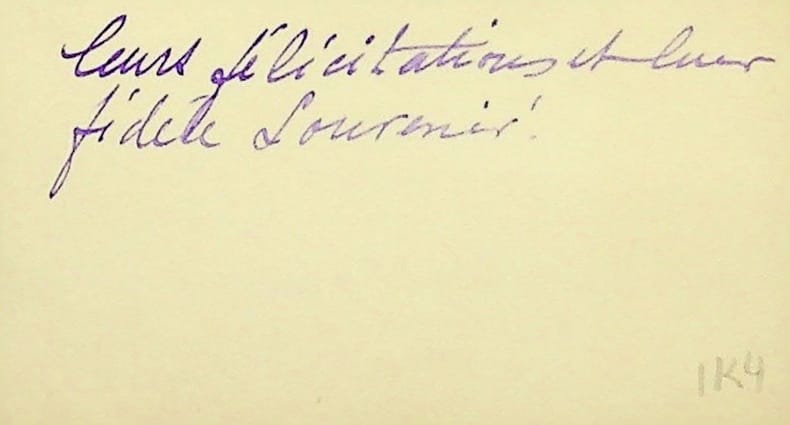 leurs félicitations et leur
fidèle Souvenir.
1K4